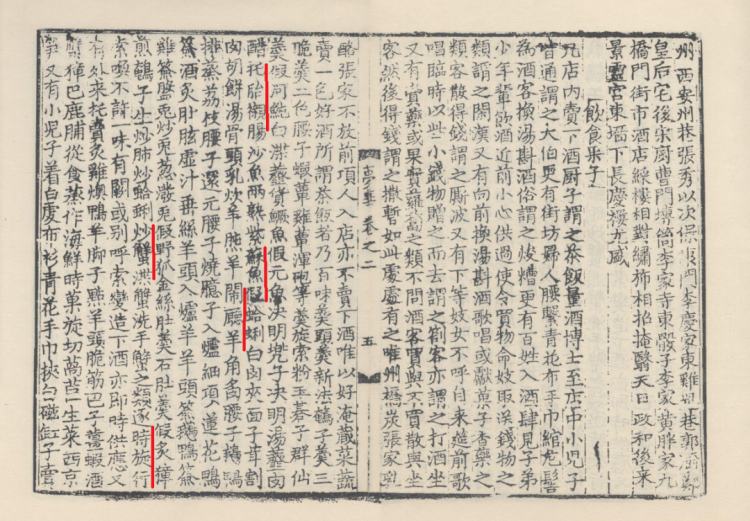 州西安州巷張秀以次保康門李慶家東雞兒巷郭廚鄭
皇后宅後宋厨曹門塼筒李家寺東骰子李家黃胖家九
橋門街市酒店綵樓相對繡旆相招掩翳天日政和後來
景靈宮東墻下長慶樓尤盛
飲食果子
凡店內賣下酒厨子謂之茶飯量酒博士至店中小兒子
皆通謂之大伯更有街坊婦人腰繫青花布手巾綰危髻
為酒客換湯斟酒俗謂之焌糟更有百姓入酒肆見子弟
少年輩飲酒近前小心供過使令買物命妓取送錢物之
類謂之閑漢又有向前換湯斟酒歌唱或獻菓子香藥之
類客散得錢謂之厮波又有下等妓女不呼自來筵前歌
唱臨時以些小錢物贈之而去謂之劄客亦謂之打酒坐
又有賣藥或果實蘿蔔之類不問酒客買與不買散與坐
客然後得錢謂之撒暫如此處處有之唯州橋炭張家乳
夢華 卷之二 五
酪張家不放前項人入店亦不賣下酒唯以好淹藏菜蔬
賣一色好酒所謂茶飯者乃百味羹頭羹新法鵪子羹三
脆羹二色腰子蝦蕈雞蕈渾砲等羹旋索粉玉碁子群仙
羹假河魨白渫虀貨鱖魚假元魚決明兜子決明湯虀肉
醋托胎襯腸沙魚兩熟紫蘇魚假蛤蜊白肉夾面子茸割
肉胡餅湯骨頭乳炊羊肫羊鬧廳羊角炙腰子鵝鴨
排蒸荔枝腰子還元腰子燒臆子入爐細項蓮花鴨
簽酒炙肚胘虛汁垂絲羊頭入爐羊羊頭簽鵝鴨簽
雞簽盤兔炒兔葱潑兔假野狐金絲肚羹石肚羹假炙獐
煎鵪子生炒肺炒蛤蜊炒蟹渫蟹洗手蟹之類逐時旋行
索喚不許一味有闕或別呼索變造下酒亦即時供應又
有外來托賣炙雞燠鴨羊脚子點羊頭脆筋巴子薑蝦酒
蟹獐巴鹿脯從食蒸作海鮮時菓旋切萵苣生菜西京
笋又有小兒子着白虔布衫青花手巾挾白磁缸子賣